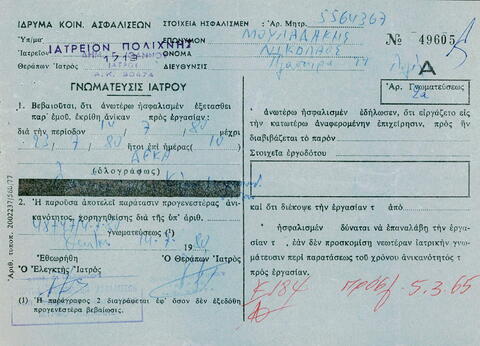 ΙΔΡΥΜΑ ΚΟΙΝ. ΑΣΦΑΛΙΣΕΩΝ
Ὑπ/μα
Ἰατρεῖον
Θεράπων Ἰατρὸς
ΙΑΤΡΕΙΟΝ ΠΟΛΙΧΝΗΣ
1713
ΙΑΤΡΟΣ
ΣΤΟΙΧΕΙΑ ΗΣΦΑΛΙΣΜΕΝ :
Ἀρ. Μητρ. 5564367
ΕΠΩΝΥΜΟΝ ΜΟΥΛΑΔΑΚΗΣ
ΟΝΟΜΑ ΝΙΚΟΛΑΟΣ
ΔΙΕΥΘΥΝΣΙΣ
№ 49605
Α
ΓΝΩΜΑΤΕΥΣΙΣ ΙΑΤΡΟΥ
1. Βεβαιοῦται, ὅτι ἀνωτέρω ἠσφαλισμὲν ἐξετασθεὶ
παρ' ἐμοῦ, ἐκρίθη ἀνίκαν πρὸς ἐργασίαν:
διὰ τὴν περίοδον 14 / 7 / 80 μέχρι
23 / 7 / 80 ἤτοι ἐπὶ ἡμέρας (10)
ΔΕΚΑ
(ὁλογράφως)
2. Ἡ παροῦσα ἀποτελεῖ παράτασιν προγενεστέρας ἀνι-
κανότητος, χορηγηθείσης διὰ τῆς ὑπ' ἀριθ.
γνωματεύσεως (1)
14-7- 19 80
Ἐθεωρήθη
Ὁ Ἐλεγκτὴς Ἰατρὸς
Ὁ Θεράπων Ἰατρὸς
(1) Ἡ παράγραφος 2 διαγράφεται ἐφ' ὅσον δὲν ἐξεδόθη
προγενεστέρα βεβαίωσις.
Ἀριθ. τυποπ. 2002237/580/77
Ἀρ. Γνωματεύσεως
2α
ἀνωτέρω ἠσφαλισμὲν ἐδήλωσεν, ὅτι εἰργάζετο εἰς
τὴν κατωτέρω ἀναφερομένην ἐπιχείρησιν, πρὸς ἣν
διαβιβάζεται τὸ παρόν.
Στοιχεῖα ἐργοδότου
καὶ ὅτι διέκοψε τὴν ἐργασίαν τ ἀπὸ
ἠσφαλισμὲν δύναται νὰ ἐπαναλάβῃ τὴν ἐργα-
σίαν τ , ἐὰν δὲν προσκομίσῃ νεωτέραν ἰατρικὴν γνω-
μάτευσιν περὶ παρατάσεως τοῦ χρόνου ἀνικανότητός τ
πρὸς ἐργασίαν.
Ε184 5.3.65